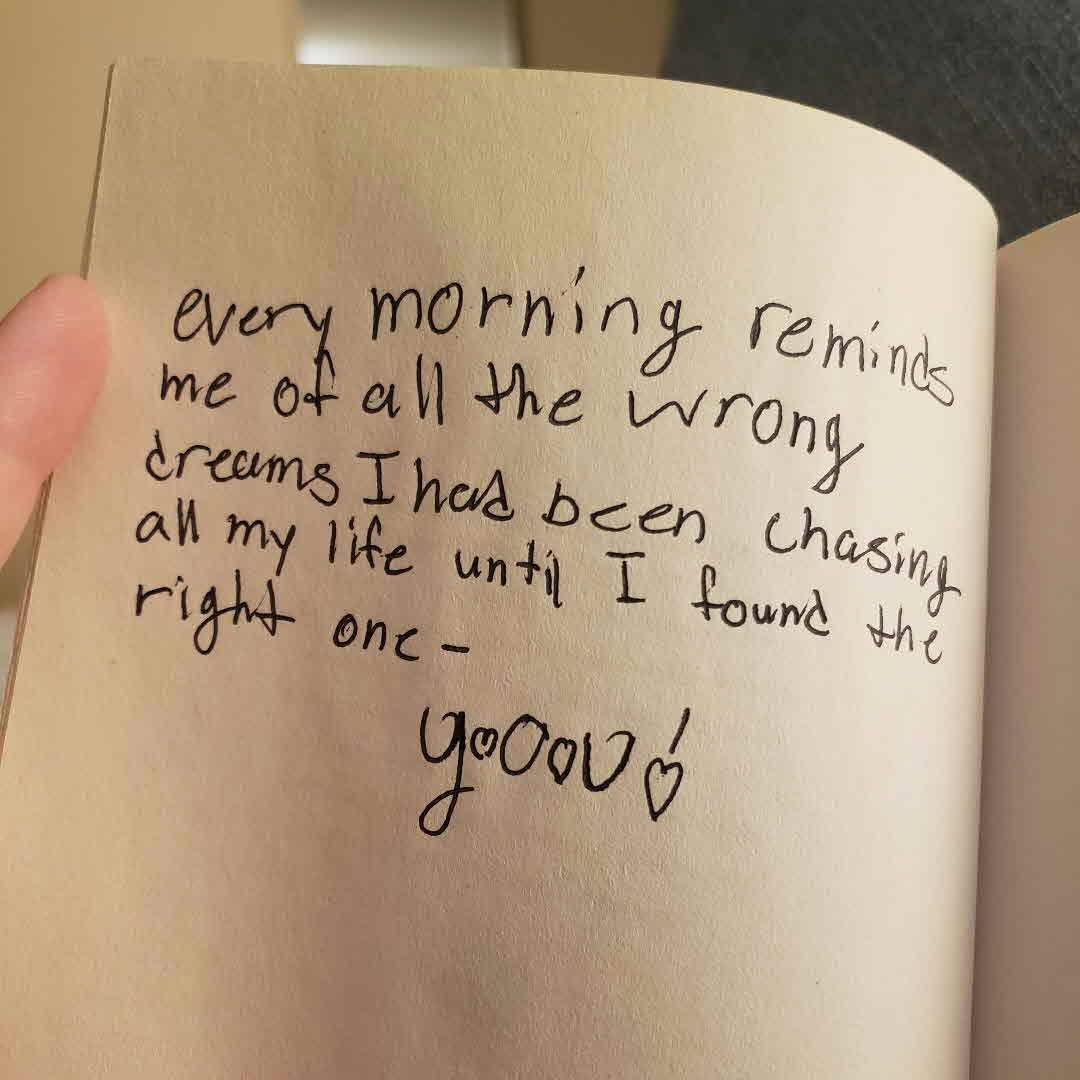 every morning reminds
me of all the wrong
dreams I had been chasing
all my life until I found the
right one -
yoOoU!